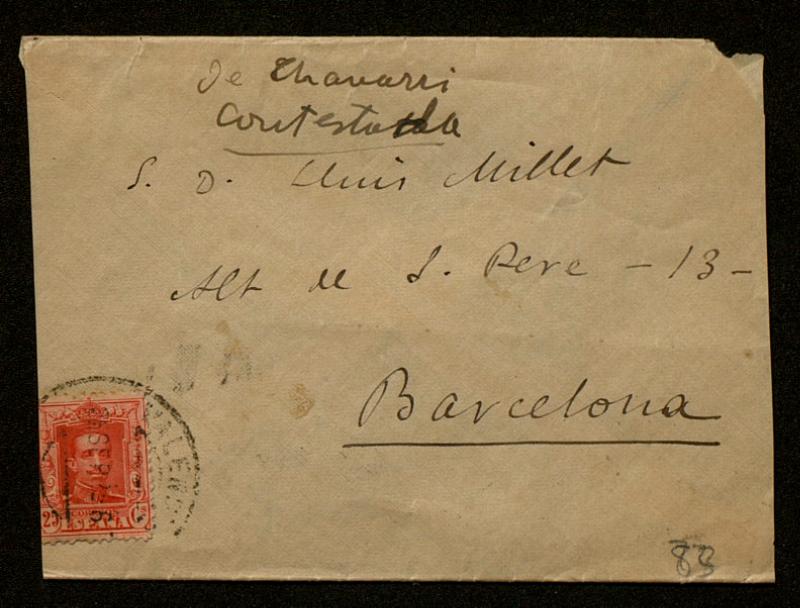 De Chavarri
Contestada
S. D. Lluis Millet
Alt de S. Pere - 13 -
Barcelona
VALENC
25 CORREOS Cs
ESPAÑA
83